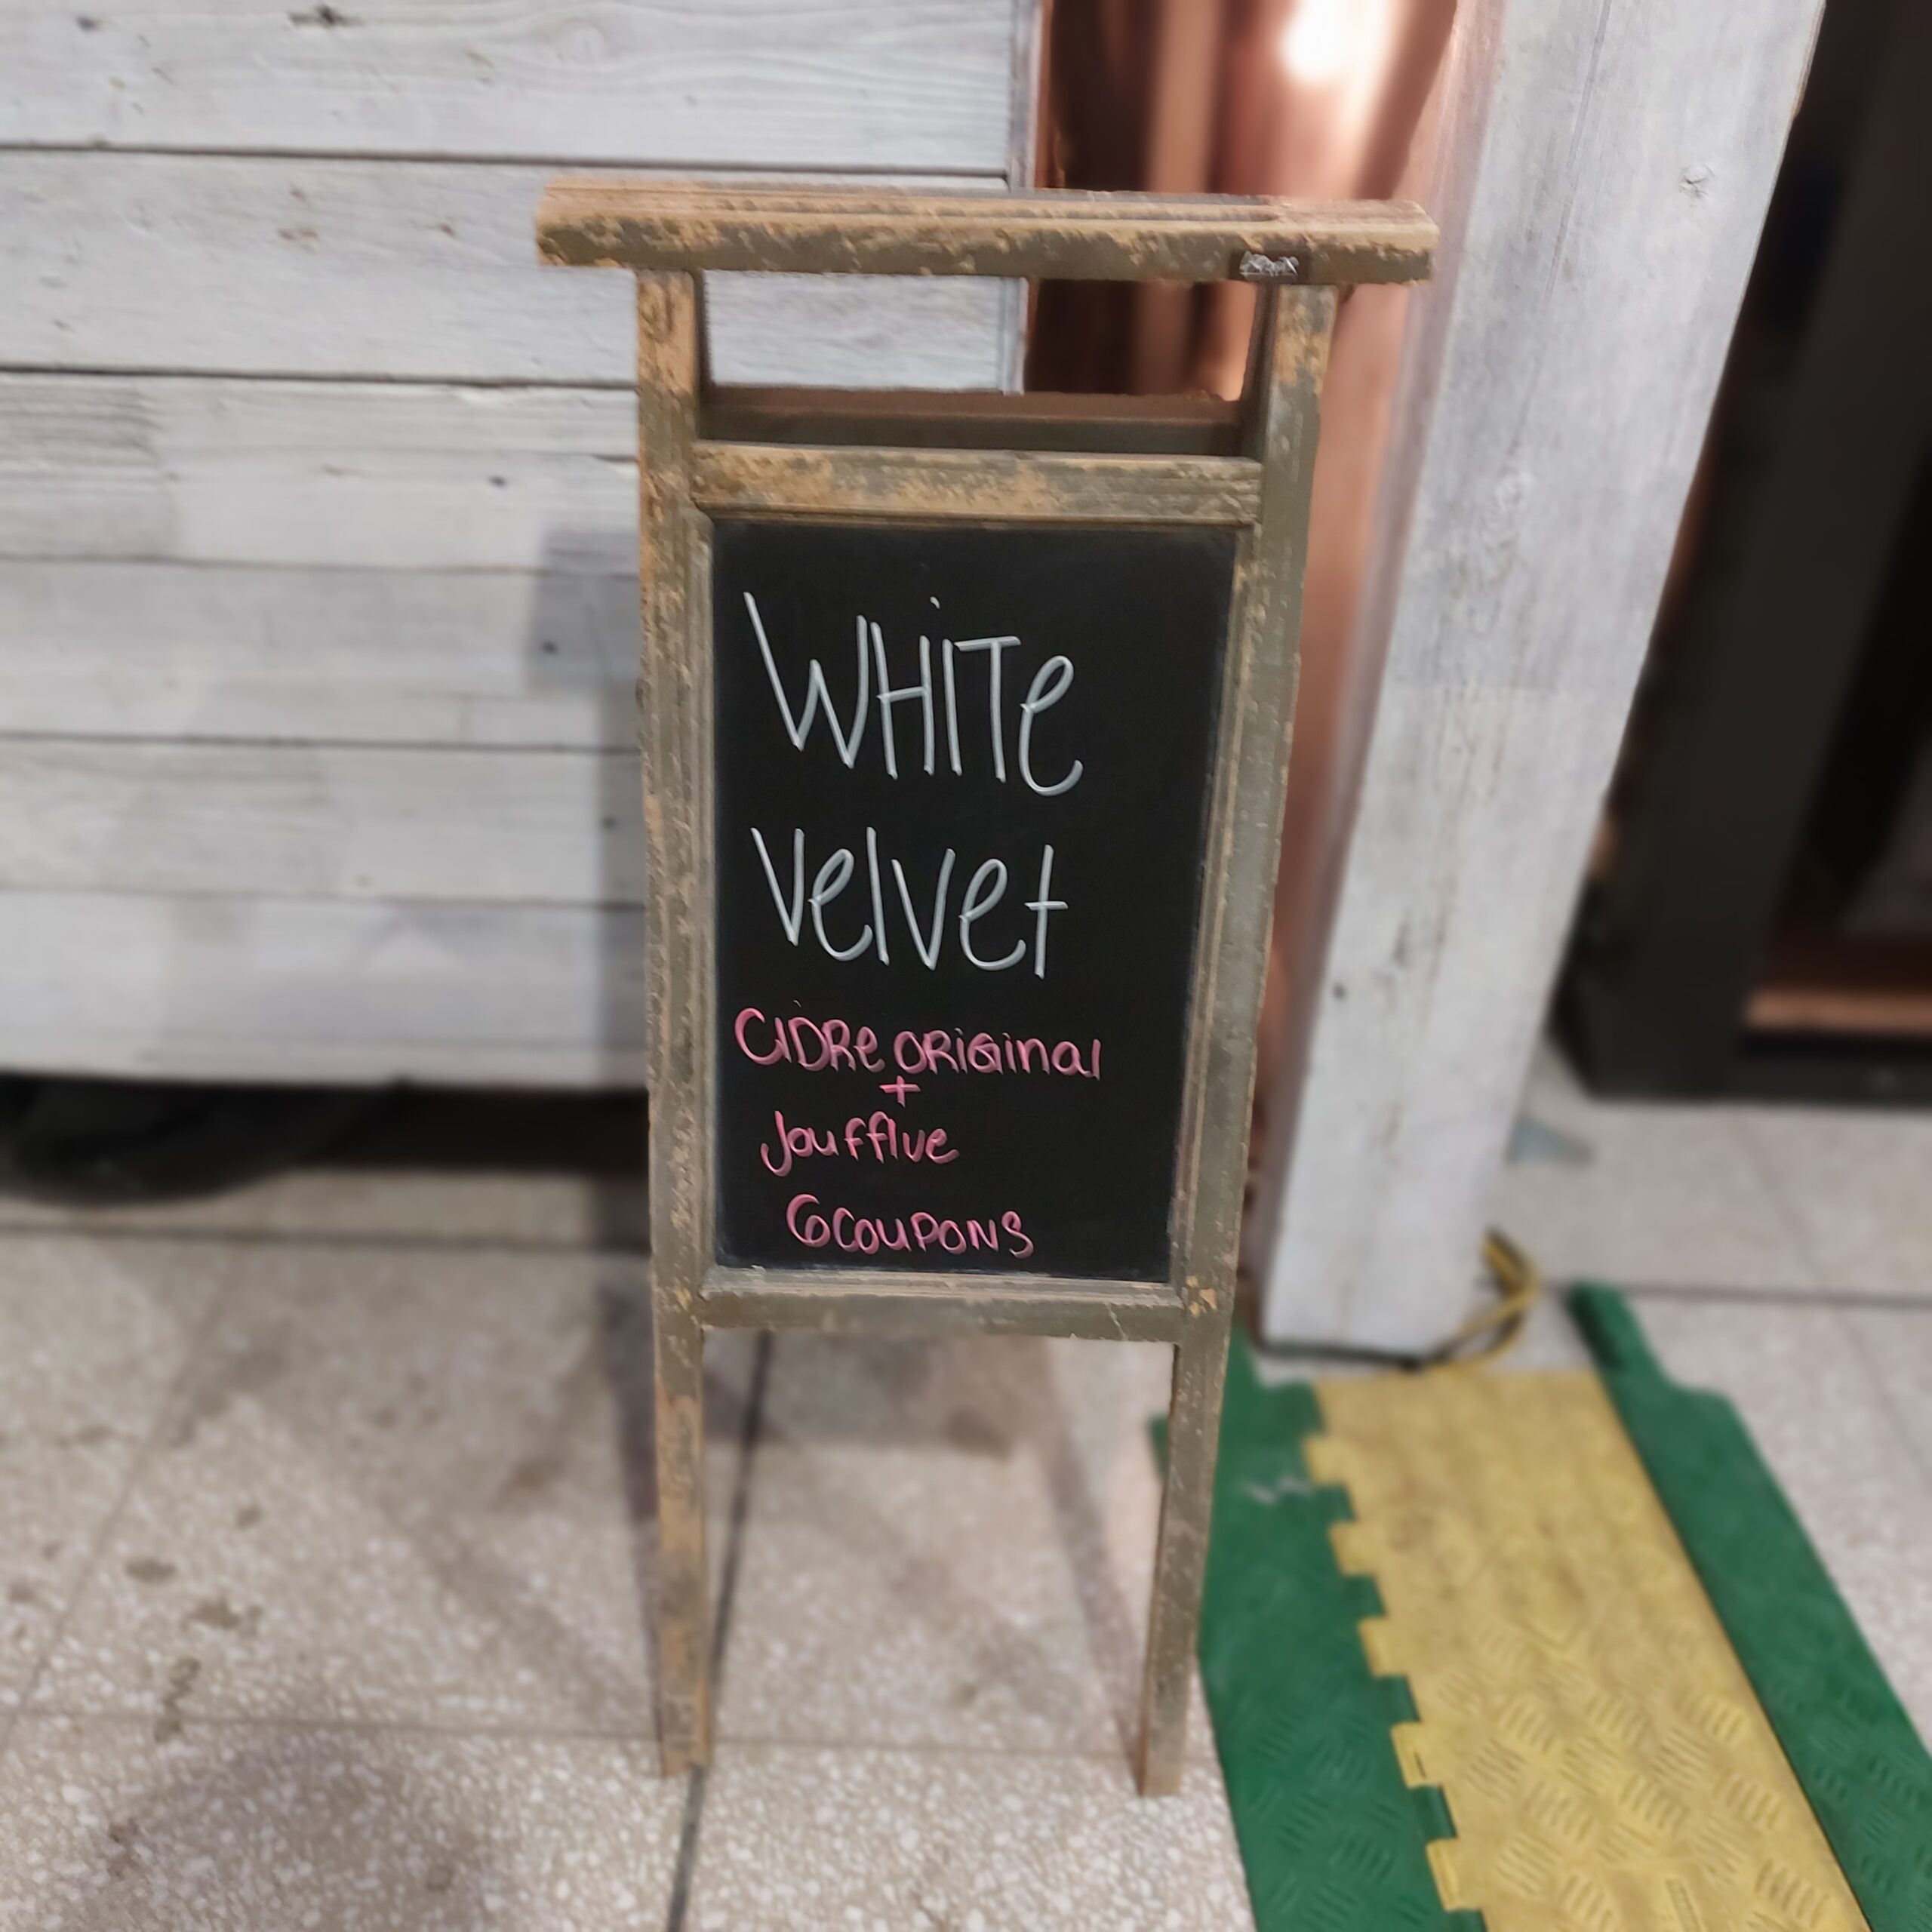 WHITe
Velvet
CIDRe ORiGinal
+
Joufflue
6 COUPONS